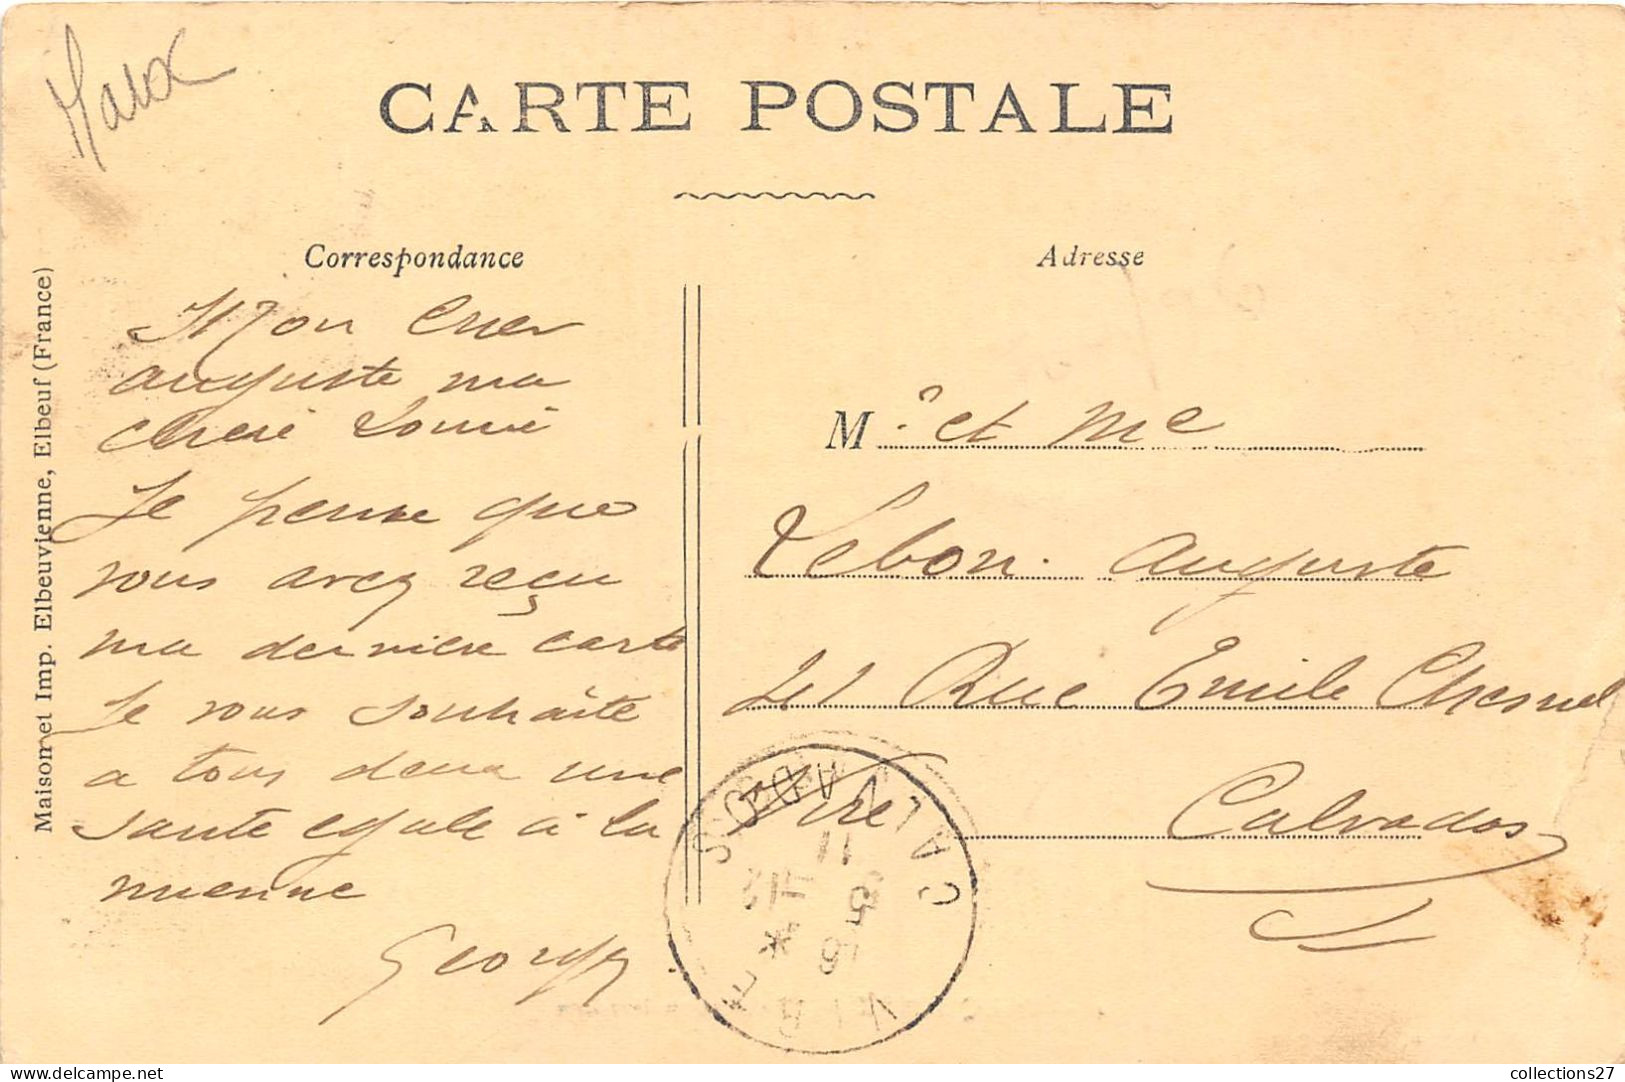 Maroc
CARTE POSTALE
Correspondance
Adresse
Maison et Imp. Elbeuvienne, Elbeuf (France)
Mon cher
auguste ma
cherè Louise
Je pense que
vous avez reçu
ma dernière carte
Je vous souhaite
a tous deux une
santé egale à la
mienne
Georges
M. et Me
Lebon. Auguste
Rue Emile Chesnel
Vire Calvados
VIRE
CALVADOS
delcampe.net
collections27